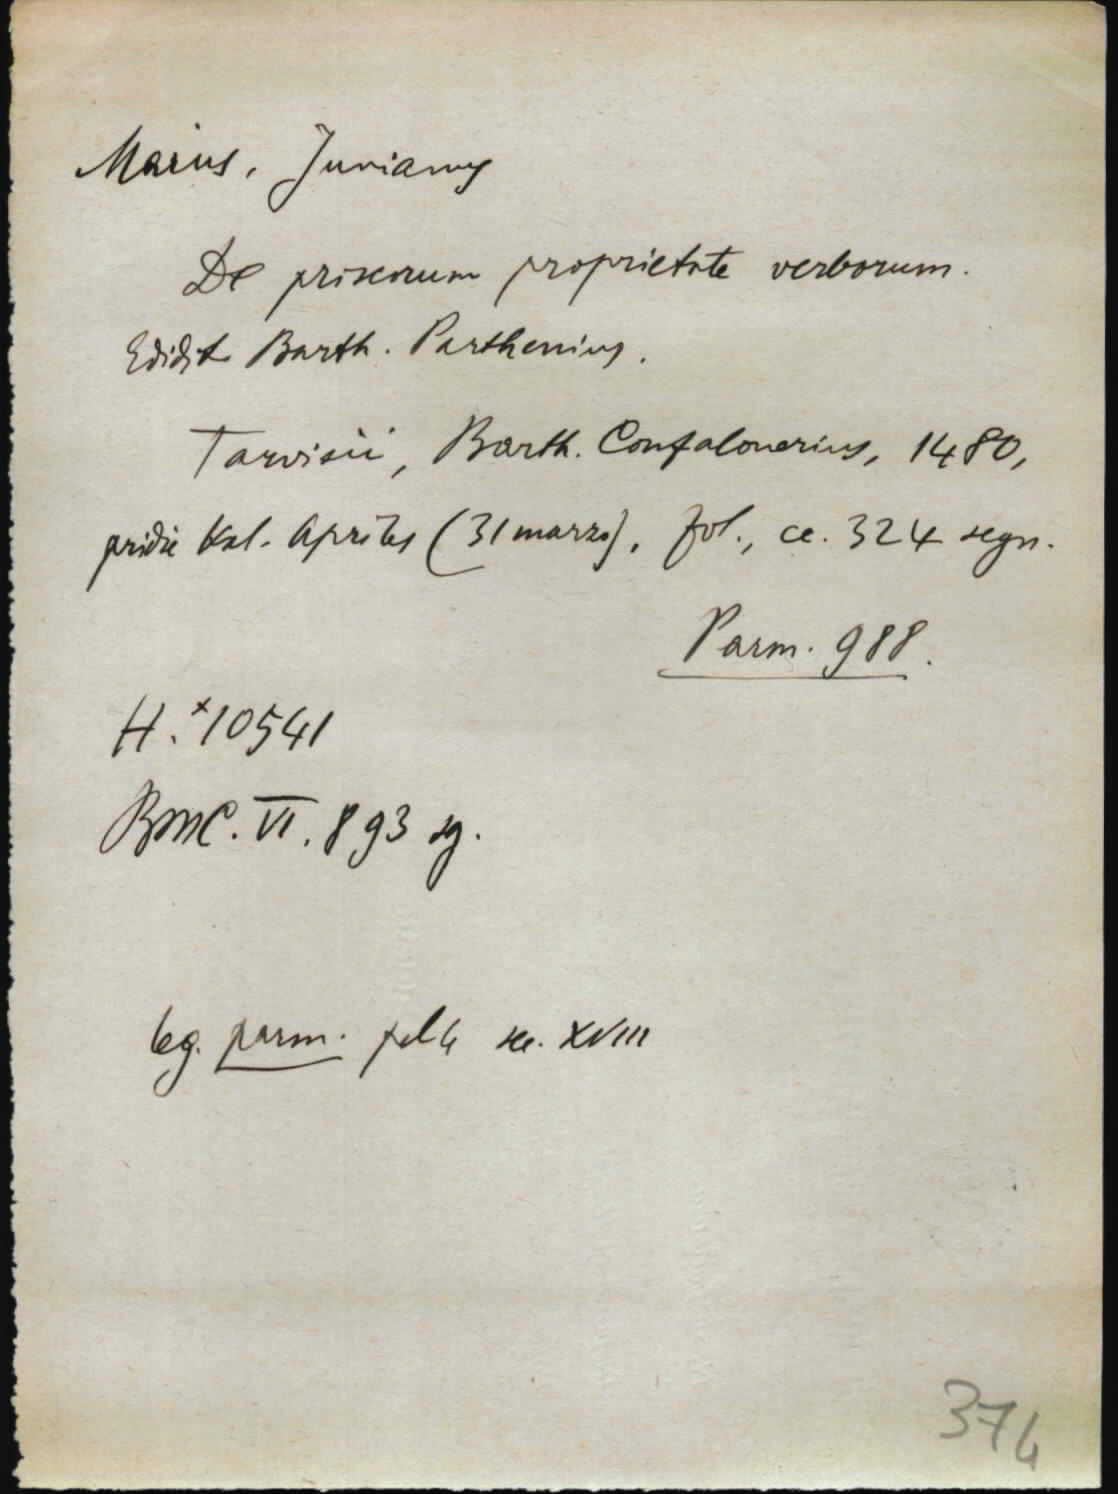 Maius, Junianus
De priscorum proprietate verborum.
Edidit Barth. Parthenius.
Tarvisii, Barth. Confalonerius, 1480,
pridie Kal. Apriles (31 marzo), fol., cc. 324 segn.
Parm. 988.
H. *10541
BMC. VI. 893 sg.
leg. parm. pelle sec. XVIII
374